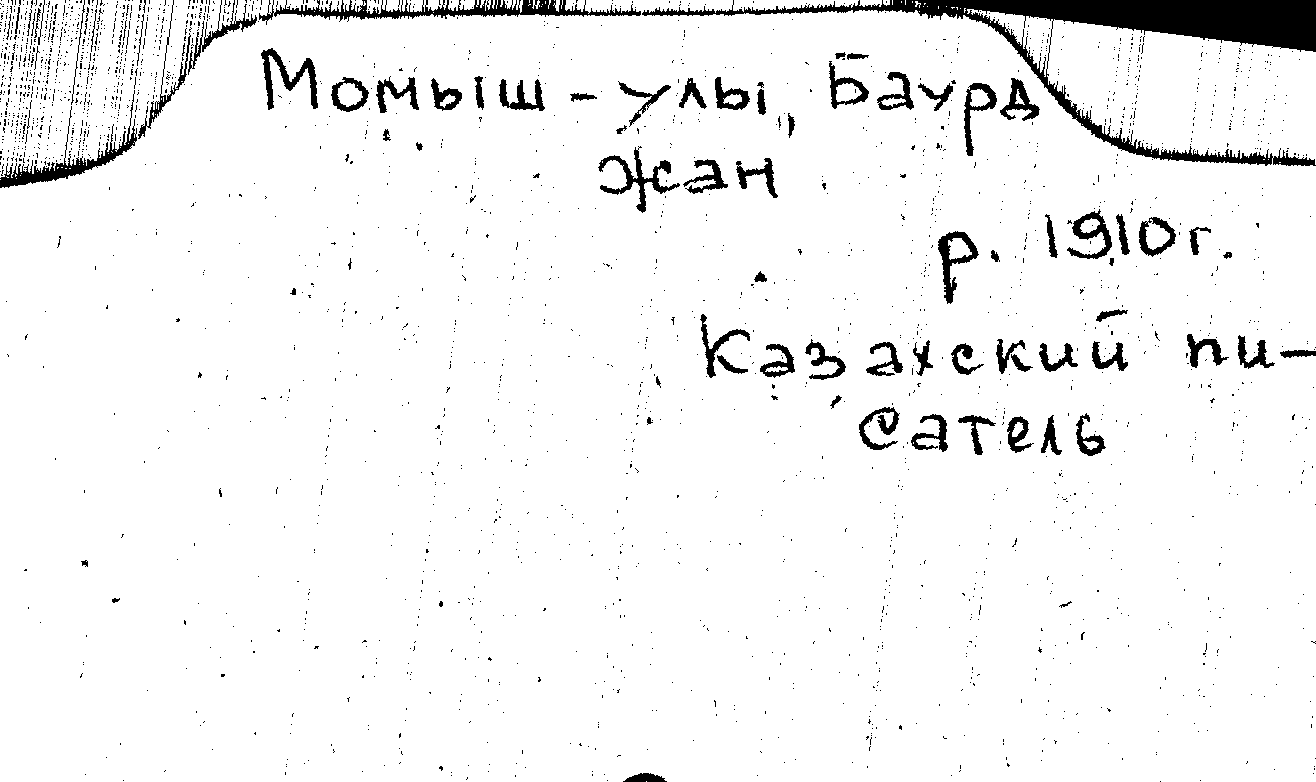 Момыш-улы, Баурд
жан
р. 1910г.
Казахский пи-
сатель